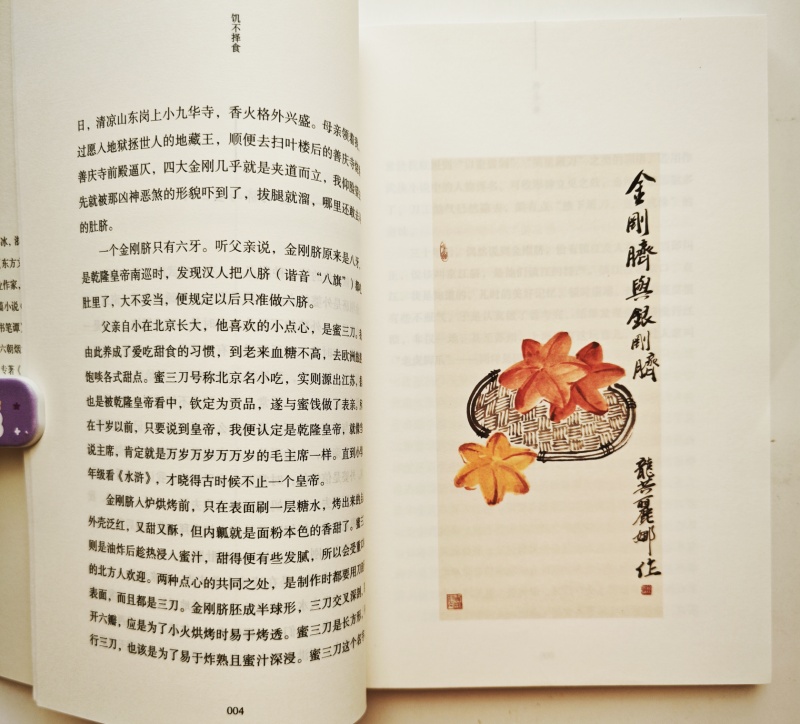 饥不择食
日，清凉山东岗上小九华寺，香火格外兴盛。母亲领着
过愿人地狱拯世人的地藏王，顺便去扫叶楼后的善庆寺
善庆寺前殿逼仄，四大金刚几乎就是夹道而立，我仰
先就被那凶神恶煞的形貌吓到了，拔腿就溜，哪里还敢去
的肚脐。
一个金刚脐只有六牙。听父亲说，金刚脐原来是八牙，
是乾隆皇帝南巡时，发现汉人把八脐（谐音“八旗”）
肚里了，大不妥当，便规定以后只准做六脐。
父亲自小在北京长大，他喜欢的小点心，是蜜三刀，
由此养成了爱吃甜食的习惯，到老来血糖不高，去欧洲
饱啖各式甜点。蜜三刀号称北京名小吃，实则源出江苏，
也是被乾隆皇帝看中，钦定为贡品，遂与蜜饯做了表亲。
在十岁以前，只要说到皇帝，我便认定是乾隆皇帝，就
说主席，肯定就是万岁万岁万万岁的毛主席一样。直到小
年级看《水浒》，才晓得古时候不止一个皇帝。
金刚脐入炉烘烤前，只在表面刷一层糖水，烤出来的
外壳泛红，又甜又酥，但内瓤就是面粉本色的香甜了。蜜三
则是油炸后趁热浸入蜜汁，甜得便有些发腻，所以会受
的北方人欢迎。两种点心的共同之处，是制作时都要用刀
表面，而且都是三刀。金刚脐胚成半球形，三刀交叉深
开六瓣，应是为了小火烘烤时易于烤透。蜜三刀是长方形，
行三刀，也该是为了易于炸熟且蜜汁深浸。蜜三刀这个名
004
冰，
东方文
作家，
篇小说《
书笔谭》
六朝烟
专著《
金剛臍與銀剛臍
龍共麗娜作